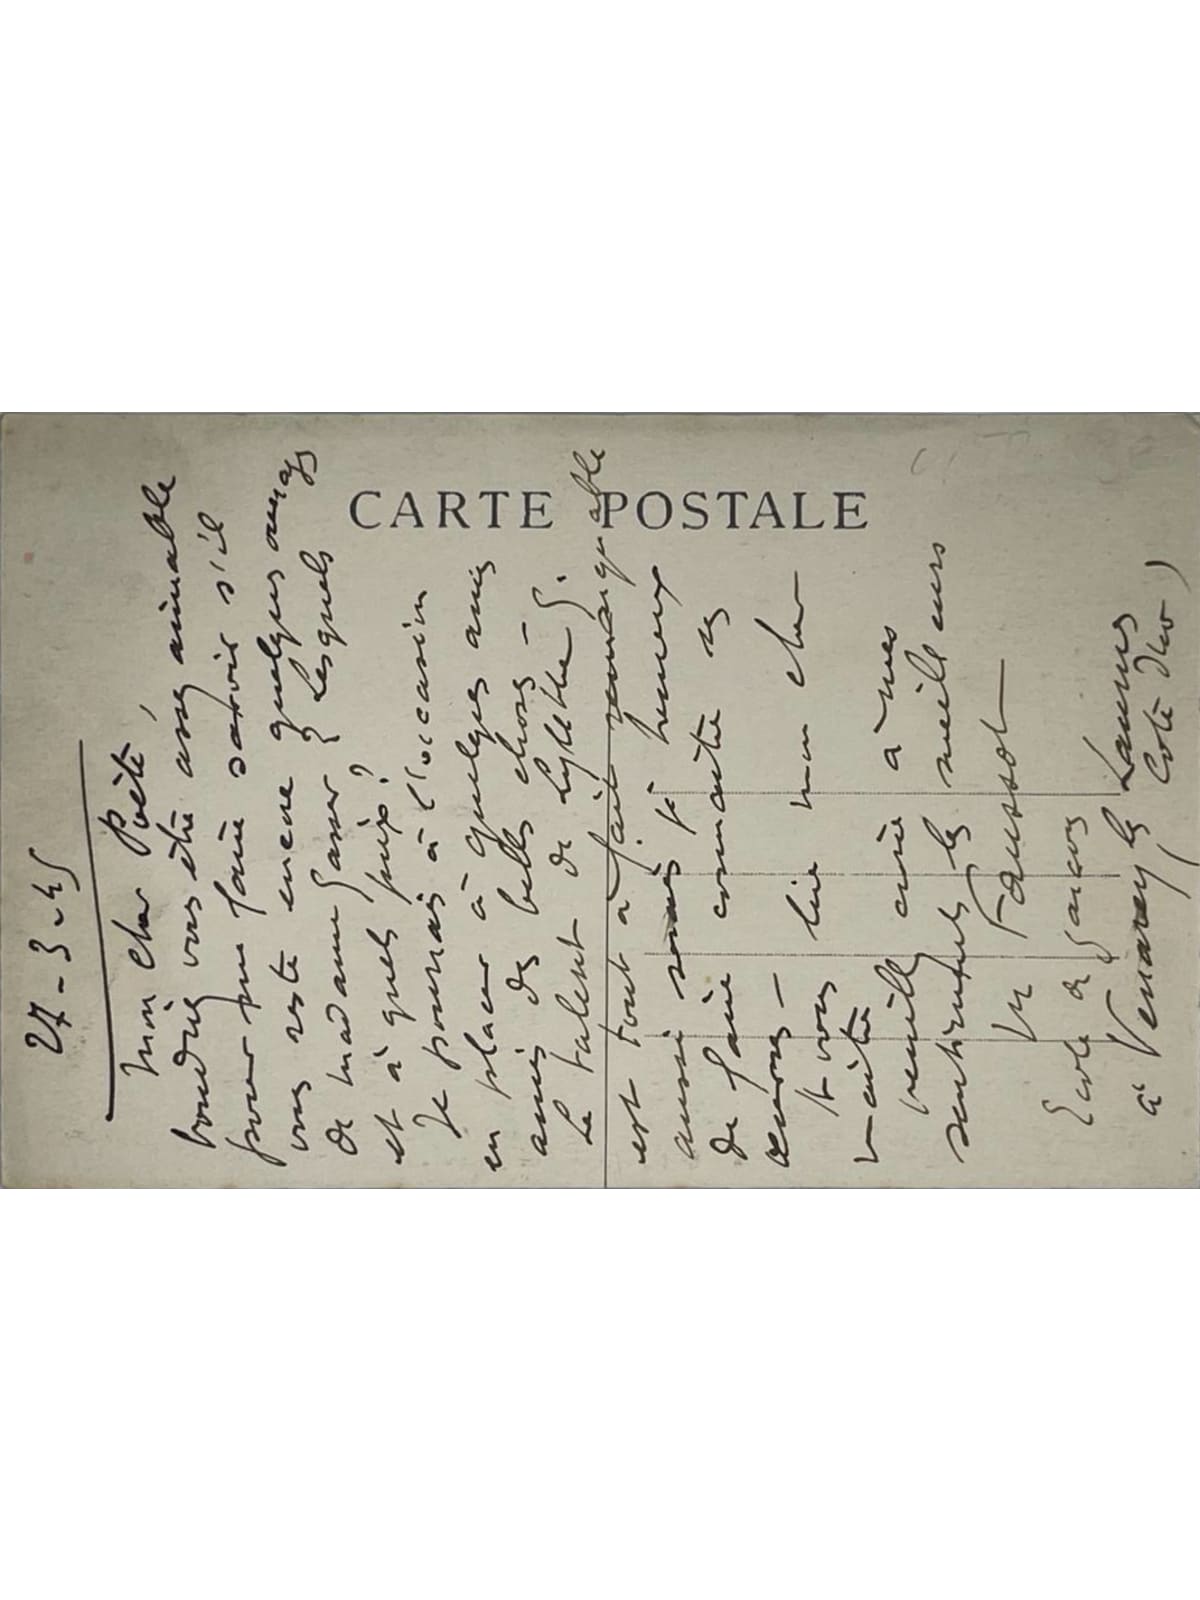 CARTE POSTALE
27-3-45
Mon cher Poète,
voudriez vous être assez aimable
pour me faire savoir s'il
vous reste encore quelques ouvrages
de madame Gasser ? Lesquels
et à quels prix ?
Je pourrais à l'occasion
en placer à quelques amis
amis des belles choses -
Le talent de Lylette G.
est tout à fait remarquable
aussi serais je heureux
de faire connaître ses
œuvres -
A vous lire mon cher
maître
veuillez croire à mes
sentiments les meilleurs
M Faussot
Ecole de Garçons
à Venarey les Laumes
Côte d'Or)